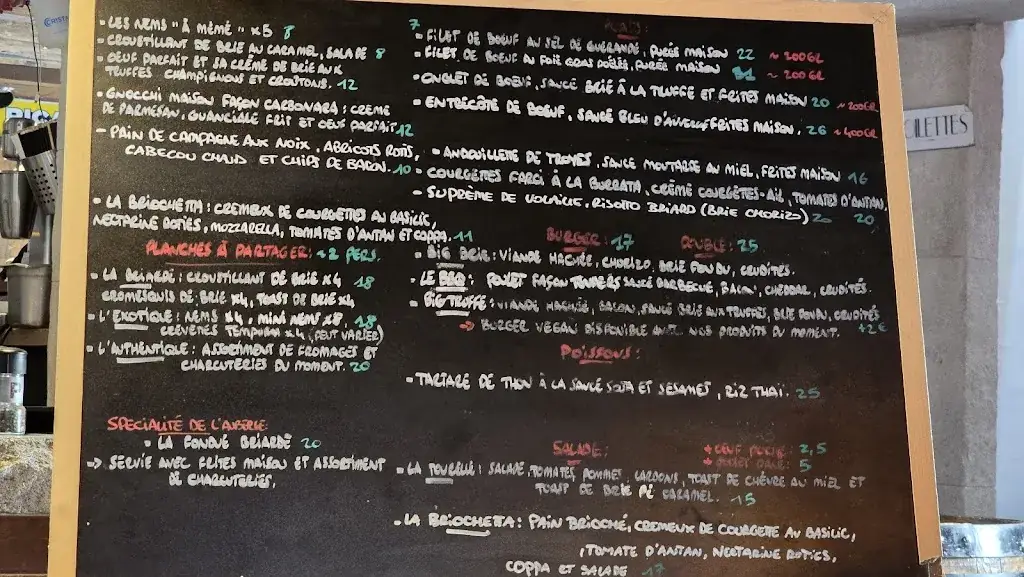 - LES NEMS "À MÉMÉ" x5 8
- CROUSTILLANT DE BRIE AU CARAMEL, SALADE 8
- OEUF PARFAIT ET SA CRÈME DE BRIE AUX
TRUFFES CHAMPIGNONS ET CROUTONS. 12
- GNOCCHI MAISON FAÇON CARBONARA : CREME
DE PARMESAN, GUANCIALE FRIT ET OEUF PARFAIT 12
- PAIN DE CAMPAGNE AUX NOIX, ABRICOTS ROTIS,
CABECOU CHAUD ET CHIPS DE BACON. 10
- LA BRIOCHETTA : CREMEUX DE COURGETTES AU BASILIC,
NECTARINE ROTIES, MOZZARELLA, TOMATES D'ANTAN ET COPPA. 11
PLANCHES À PARTAGER : ~2 PERS.
- LA BRIARDE : CROUSTILLANT DE BRIE x4 18
CROMESQUIS DE BRIE x4, TOAST DE BRIE x4
- L'EXOTIQUE : NEMS x4, MINI NEMS x8, 18
CREVETTES TEMPURA x4 (PEUT VARIER)
- L'AUTHENTIQUE : ASSORTIMENT DE FROMAGES ET
CHARCUTERIES DU MOMENT. 20
SPECIALITÉ DE L'AUBERGE:
- LA FONDUE BRIARDE 20
-> SERVIE AVEC FRITES MAISON ET ASSORTIMENT
DE CHARCUTERIES,
7
PLATS :
- FILET DE BOEUF AU SEL DE GUERANDE, PURÉE MAISON 22 ~ 200GR
- FILET DE BOEUF AU FOIE GRAS POÊLÉS, PURÉE MAISON ~ 200GR
- ONGLET DE BOEUF, SAUCE BRIE À LA TRUFFE ET FRITES MAISON 20 ~ 200GR
- ENTRECÔTE DE BOEUF, SAUCE BLEU D'AUVERGNE FRITES MAISON. 26 ~ 400GR
- ANDOUILLETTE DE TROYES, SAUCE MOUTARDE AU MIEL, FRITES MAISON 16
- COURGETTES FARCI À LA BURRATA, CRÈME COURGETTES-AIL, TOMATES D'ANTAN,
20
- SUPRÈME DE VOLAILLE, RISOTTO BRIARD (BRIE CHORIZO) 20
BURGER : 17 DOUBLE : 25
- BIG BRIE : VIANDE HACHÉE, CHORIZO, BRIE FONDU, CRUDITÉS.
- LE BBQ : POULET FAÇON TENDERS SAUCE BARBECUE, BACON, CHEDDAR, CRUDITÉS.
- BIG TRUFFE : VIANDE HACHÉE, BACON, SAUCE BRIE AUX TRUFFES, BRIE FONDU, CRUDITÉS
-> BURGER VEGAN DISPONIBLE AVEC NOS PRODUITS DU MOMENT. +2€
POISSONS :
- TARTARE DE THON À LA SAUCE SOJA ET SESAMES, RIZ THAÏ. 25
SALADE : + OEUF POCHÉ : 2,5
5
- LA TOURELLE : SALADE, TOMATES, POMMES, LARDONS, TOAST DE CHÈVRE AU MIEL ET
TOAST DE BRIE AU CARAMEL. 15
- LA BRIOCHETTA : PAIN BRIOCHÉ, CREMEUX DE COURGETTE AU BASILIC,
, TOMATE D'ANTAN, NECTARINE ROTIES,
COPPA ET SALADE 17